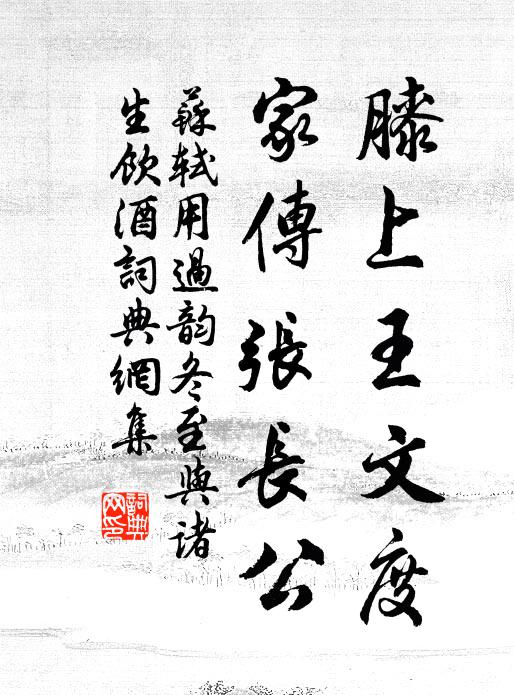 膝上王文度
家傳張長公
蘇軾用過韵冬至與諸
生飲酒詞典網集
詞典網印